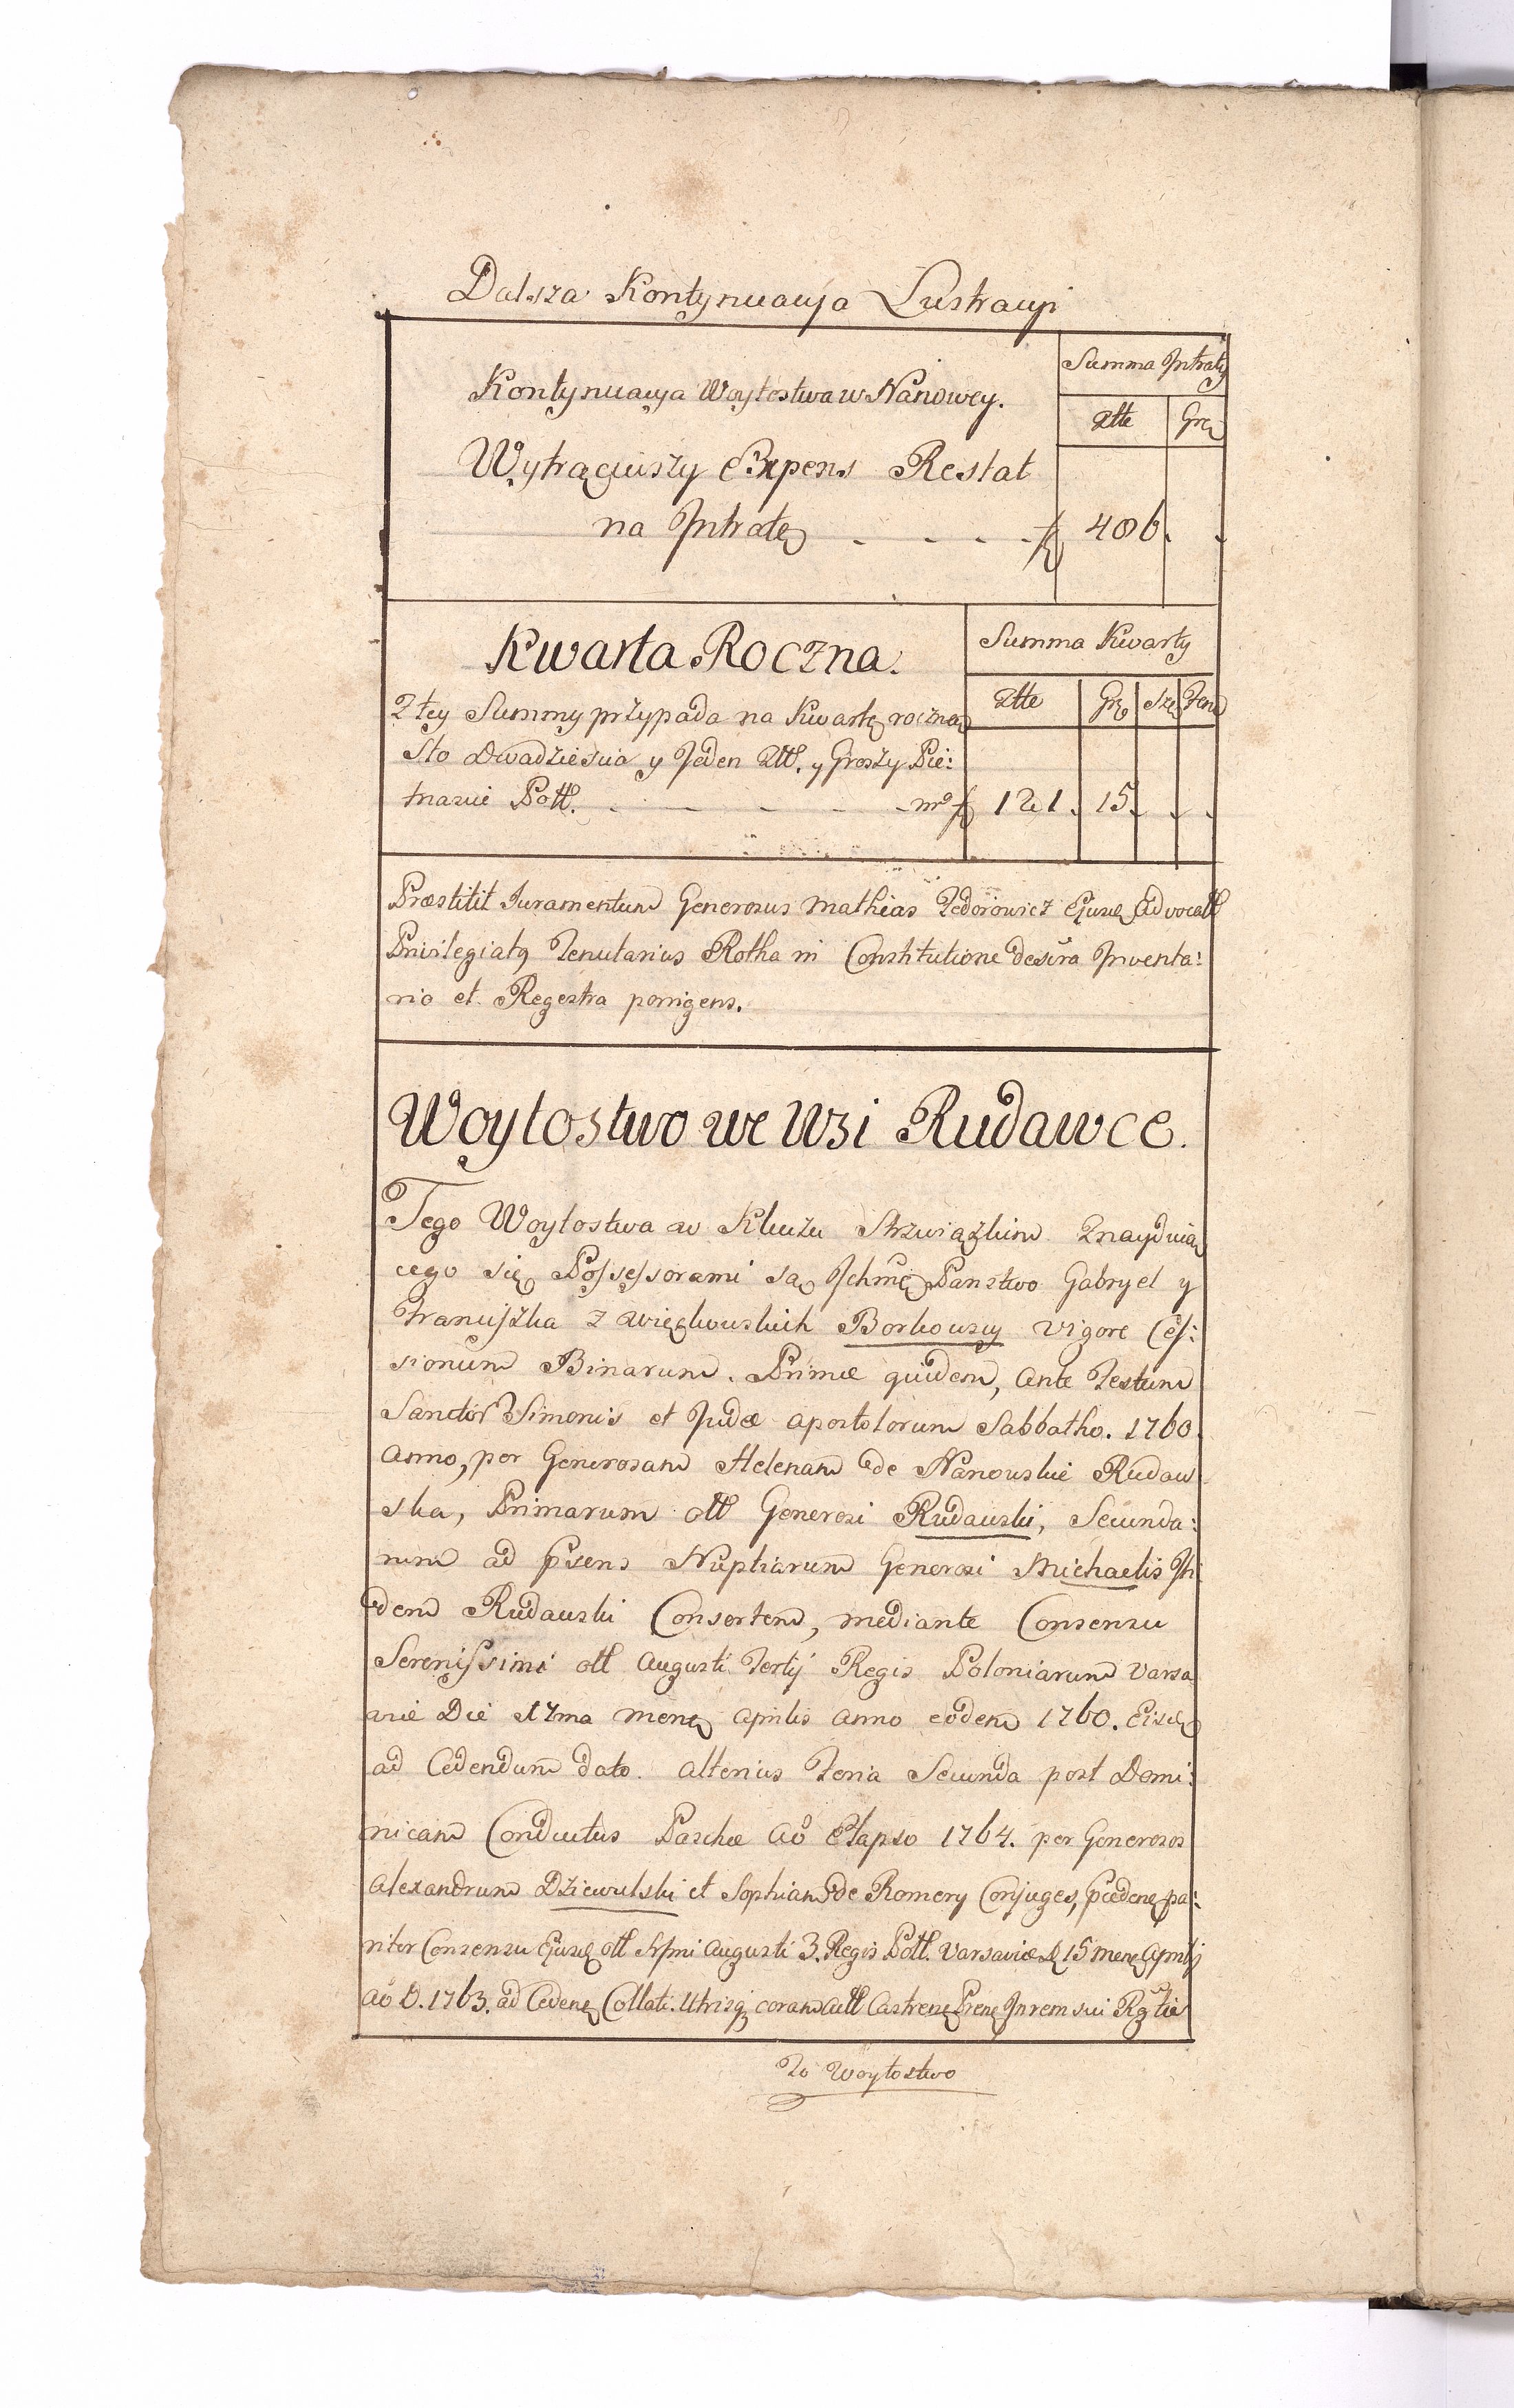 Dalsza Kontynuacya Lustracyi
Kontynuacya Woytostwa w Nanowey.
Summa Intraty
Złłe Grę
Wytrąciwszy Expens Restat
na Intratę 486.
Kwarta Roczna.
Summa Kwarty
Złłe Gr Sze Den
Z tey Summy przypada na Kwartę roczną
Sto Dwadziescia y Jeden Złł. y Groszy Pie:
tnascie Poll. 121. 15.
Præstitit Juramentum Generosus Mathias Fedorowicz Ejusd Advocatt
Privilegiatq Tenutarius Rotha in Constitutione descra Inventa:
rio et Regestra porrigens.
Woytostwo we Wsi Rudawce.
Tego Woytostwa w Kluczu Strzwiązkim Znayduią
cego się Possessorami są Ichmć Panstwo Gabryel y
Franciszka z Więckwuskich Borkowscy vigore Ces:
sionum Binarum. Primæ quidem, Ante Festum
Sanctor Simonis et Judæ Apostolorum Sabbatho. 1760.
Anno, per Generosam Helenam de Nanouskie Rudaw
ska, Primarum oll Generosi Rudauski, Secunda:
rum ad præns Nuptiarum Generosi Michaelis Iti
dem Rudauski Consortem, mediante Consensu
Serenissimi oll Augusti Tertÿ Regis Poloniarum Varsa
viæ Die 17ma Mens Aprilis Anno eodem 1760. Eisd
ad Cedendum dato. Alterius Feria Secunda post Domi:
nicam Conductus Paschæ Aō Elapso 1764. per Generosos
Alexandrum Dziewulski et Sophiam de Romery Conjuges, præden pa:
riter Consensu Ejusd oll Srpmi Augusti 3. Regis Poll. Varsaviæ D 15 Mens Aprilÿ
Aō D. 1763. ad Ceden Collati. Utrisq coram Actt Castren Præns In rem sui Rgtiæ
To Woytostwo